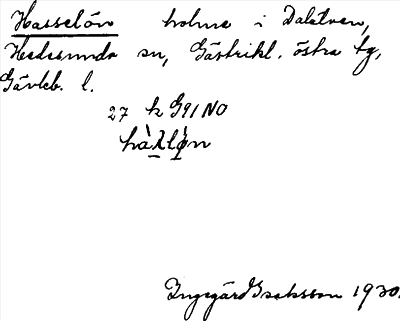 Hasselön holme i Dalälven,
Hedesunda sn, Gästrikl. östra tg,
Gävleb. l.
27 k G91 NO
Ingegärd Isaksson 1930.